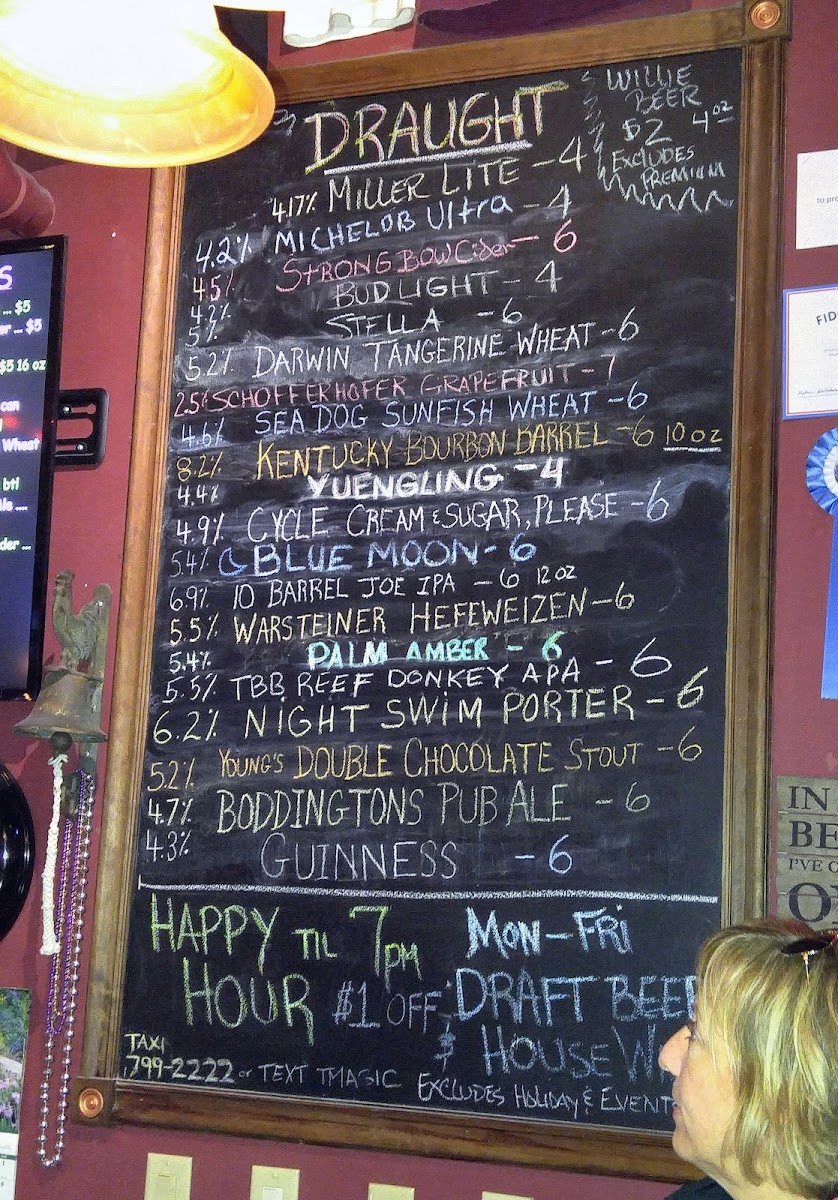 DRAUGHT
WILLIE
BEER
$2 4 oz
EXCLUDES
PREMIUM
4.17% MILLER LITE - 4
4.2% MICHELOB Ultra - 4
4.5% STRONGBOW Cider - 6
4.2% BUD LIGHT - 4
5% STELLA - 6
5.2% DARWIN TANGERINE WHEAT - 6
2.5% SCHOFFERHOFER GRAPEFRUIT - 7
4.6% SEA DOG SUNFISH WHEAT - 6
8.2% KENTUCKY BOURBON BARREL - 6 10 oz
4.4% YUENGLING - 4
4.9% CYCLE CREAM & SUGAR, PLEASE - 6
5.4% BLUE MOON - 6
6.9% 10 BARREL JOE IPA - 6 12 oz
5.5% WARSTEINER HEFEWEIZEN - 6
5.4% PALM AMBER - 6
5.5% TBB REEF DONKEY APA - 6
6.2% NIGHT SWIM PORTER - 6
5.2% YOUNG'S DOUBLE CHOCOLATE STOUT - 6
4.7% BODDINGTONS PUB ALE - 6
4.3% GUINNESS - 6
HAPPY TIL 7pm MON-FRi
HOUR $1 OFF DRAFT BEER
& HOUSE
TAXI
799-2222 or TEXT TMAGIC
EXCLUDES HOLIDAY & EVENT
S
... $5
... $5
$5 16 oz
can
Wheat
btl
to pro
FID
IN
BE
I'VE
O